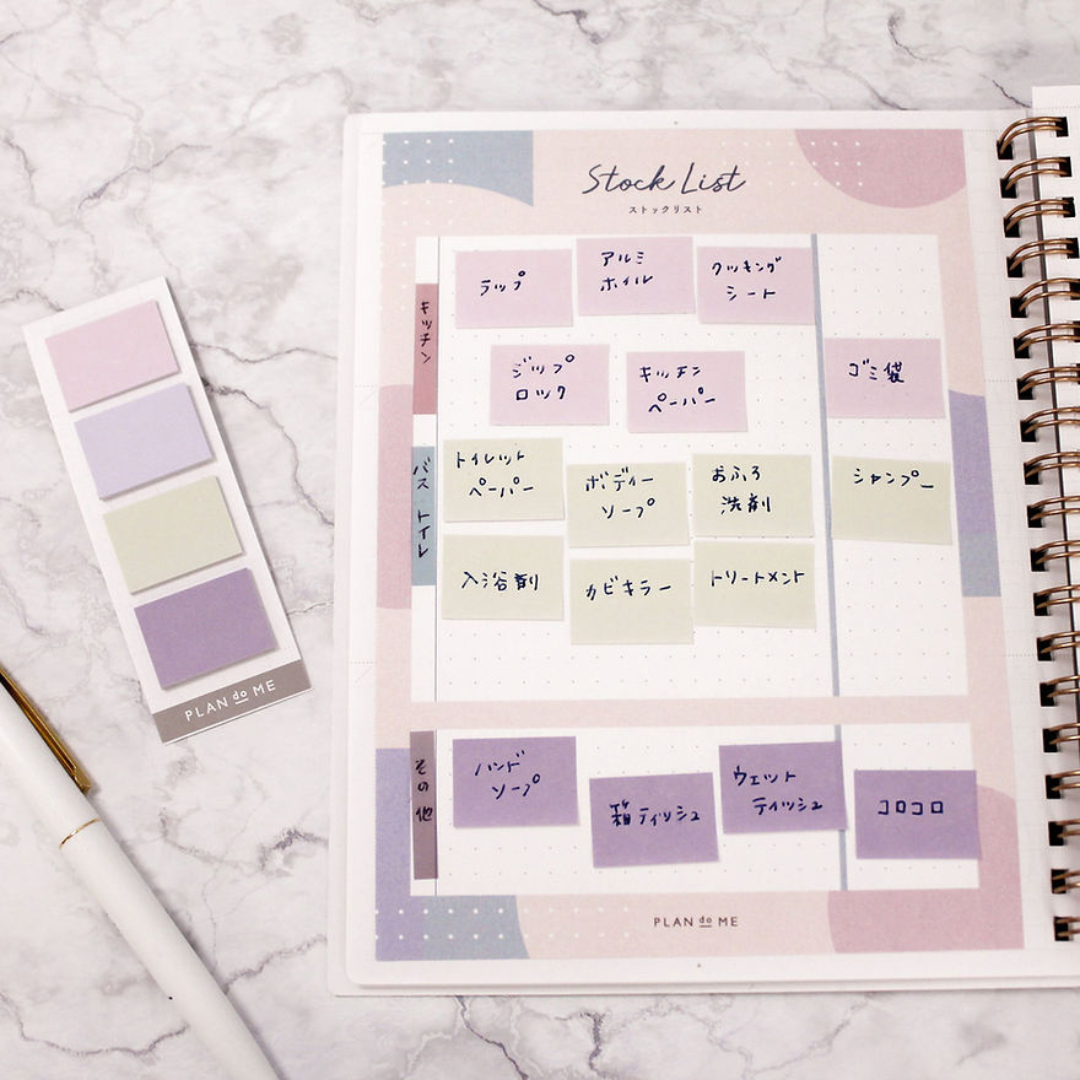 Stock List
ストックリスト
キッチン
ラップ
アルミ
ホイル
クッキング
シート
ジップ
ロック
キッチン
ペーパー
ゴミ袋
バス トイレ
トイレット
ペーパー
ボディー
ソープ
おふろ
洗剤
シャンプー
入浴剤
カビキラー
トリートメント
その他
ハンド
ソープ
箱ティッシュ
ウェット
ティッシュ
コロコロ
PLAN do ME
PLAN do ME